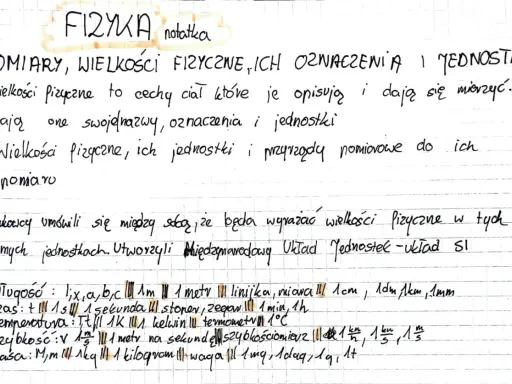 FIZYKA notatka
OMIARY, WIELKOŚCI FIZYCZNE, ICH OZNACZENIA I JEDNOST
ielkości fizyczne to cechy ciał które je opisują i dają się mierzyć.
ają one swoje nazwy, oznaczenia i jednostki
Wielkości fizyczne, ich jednostki i przyrządy pomiarowe do ich
pomiaru
ukowcy umówili się między sobą, że będą wyrażać wielkości fizyczne w tych
mych jednostkach. Utworzyli Międzynarodowy Układ Jednostek - układ SI
ługość: l,x,a,b,c ||| 1m ||| 1 metr ||| linijka, miara ||| 1cm, 1dm, 1km, 1mm
zas: t ||| 1s ||| 1 sekunda ||| stoper, zegar ||| 1min, 1h
emperatura: T,t ||| 1K ||| 1 kelwin ||| termometr ||| 1°C
zybkość: v 1 m/s ||| 1 metr na sekundę ||| szybkościomierz ||| 1 km/h, 1 km/s, 1 m/s
asa: M,m ||| 1kg ||| 1 kilogram ||| waga ||| 1mg, 1dag, 1g, 1t